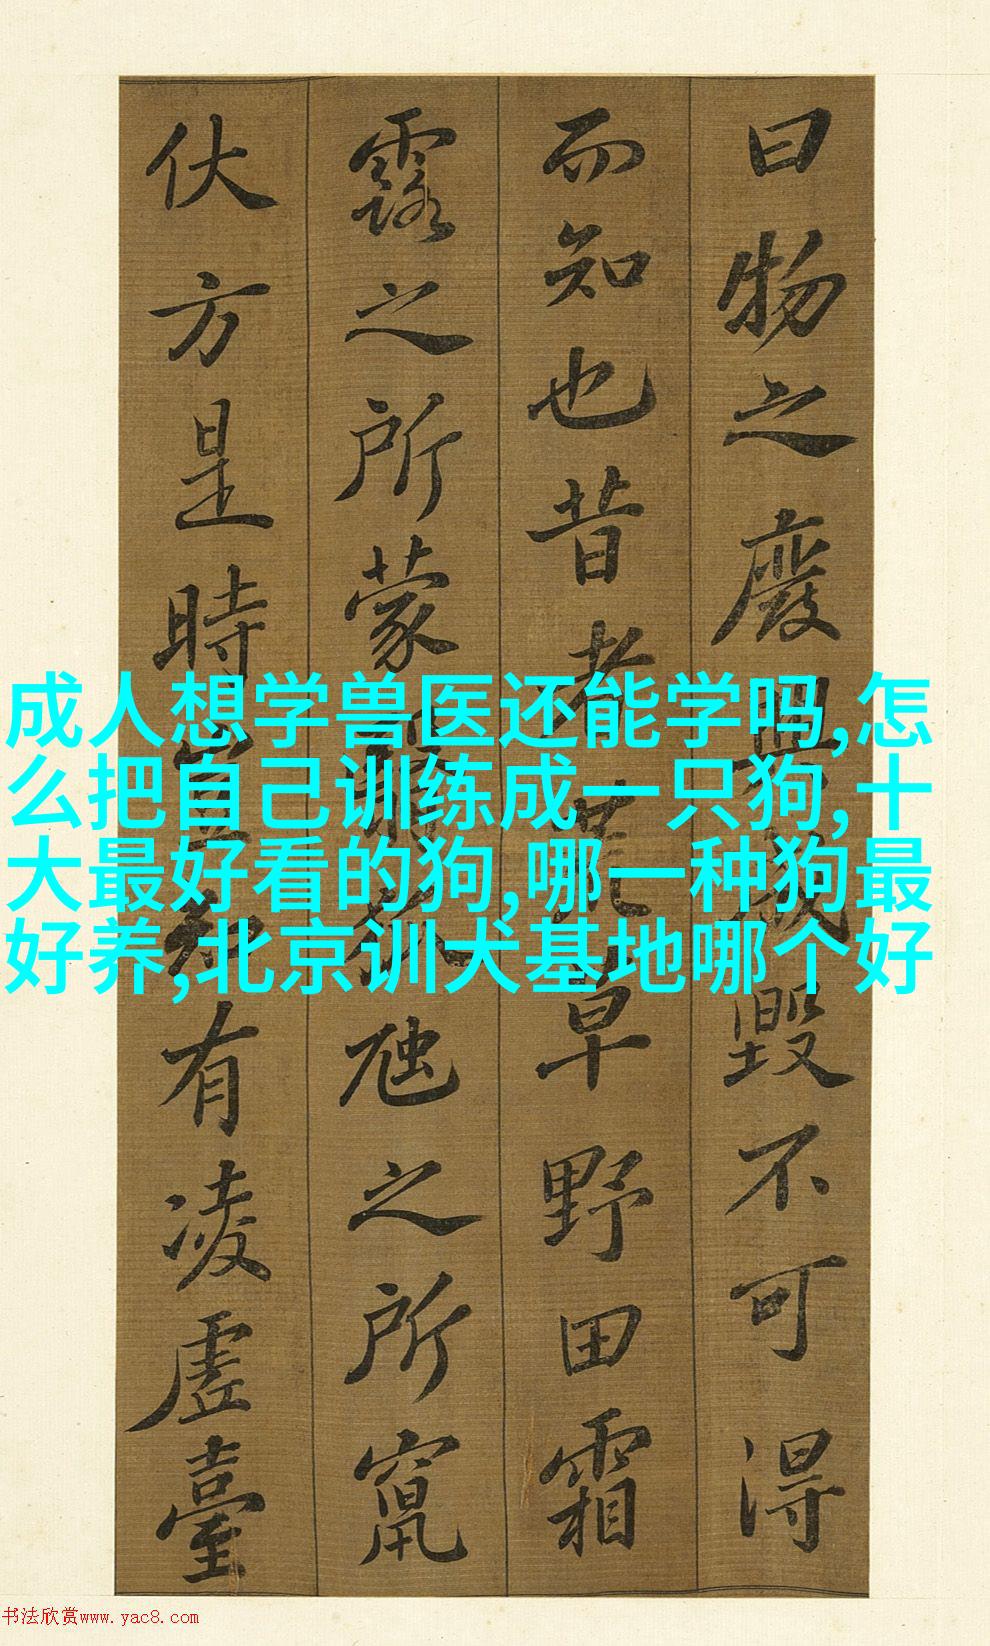 曰物之廢興成毀不可得
而知也昔者荒草野田霜
露之所蒙翳狐虺之所竄
伏方是時豈知有凌虛臺
成人想学兽医还能学吗,怎
么把自己训练成一只狗,十
大最好看的狗,哪一种狗最
好养,北京训犬基地哪个好
书法欣赏www.yac8.com